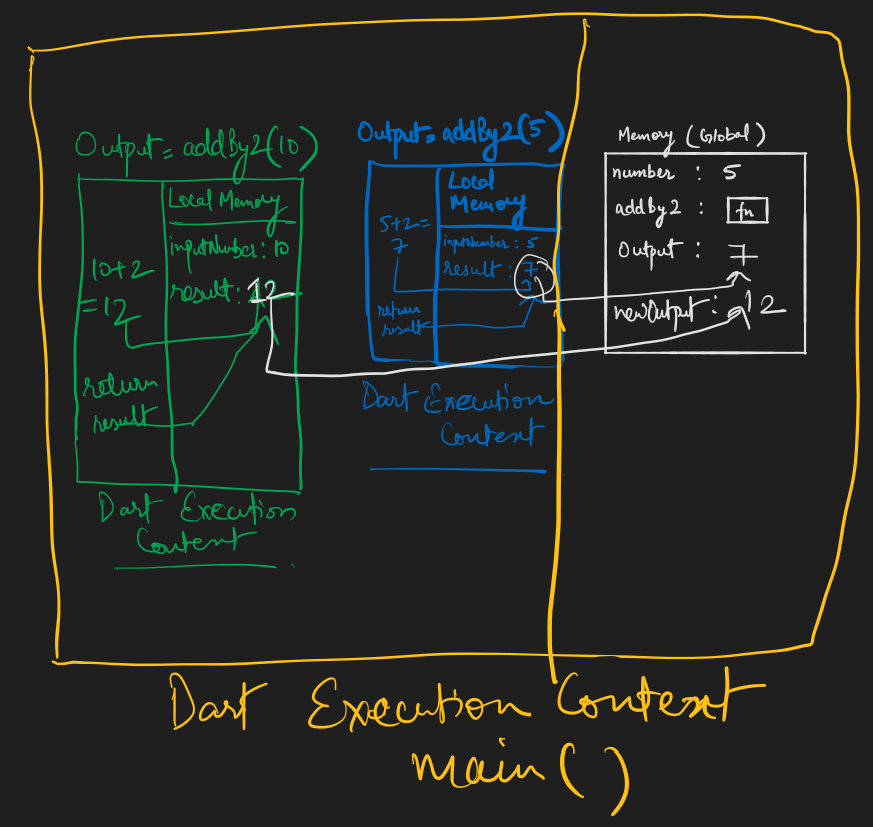 Output = addBy2(10)
Local Memory
inputNumber : 10
10+2
= 12
result : 12
return
result
Dart Execution
Context
Output = addBy2(5)
Local
Memory
5+2=
7
inputNumber : 5
result : 7
return
result
Dart Execution
Context
Memory (Global)
number : 5
addBy2 : fn
Output : 7
newOutput : 12
Dart Execution Context
main()